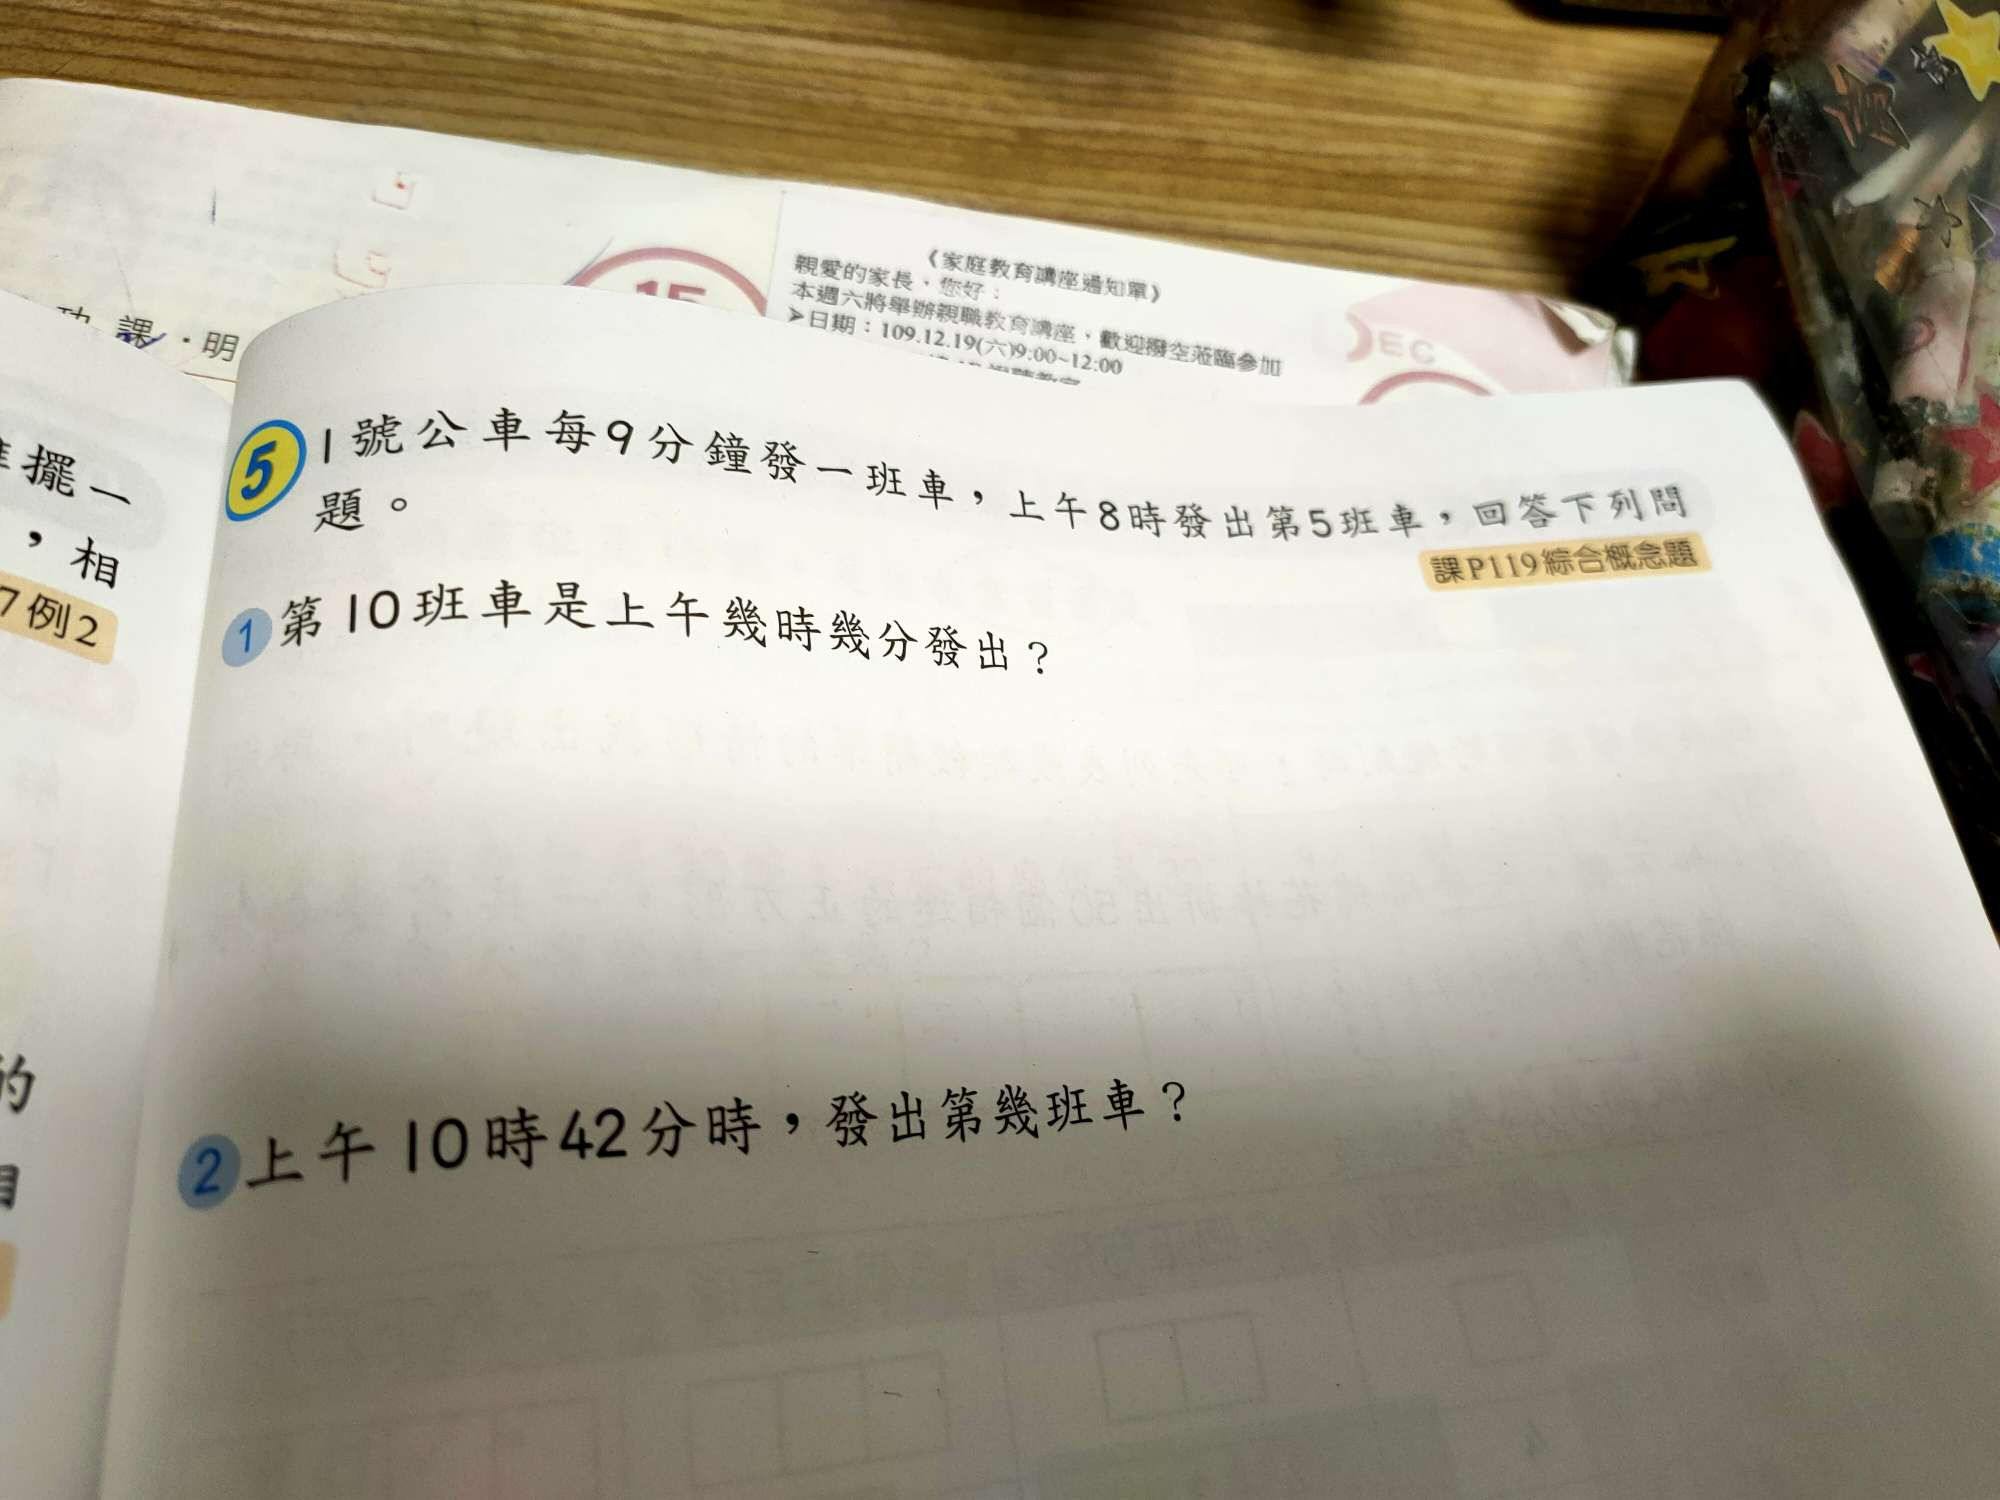 《家庭教育講座通知單》
親愛的家長，您好：
本週六將舉辦親職教育講座，歡迎撥空蒞臨參加
➤日期：109.12.19(六)9:00~12:00
15
EC
功 課 · 明
擺一
，相
7例2
的
5 1號公車每9分鐘發一班車，上午8時發出第5班車，回答下列問
題。
課P119綜合概念題
1 第10班車是上午幾時幾分發出？
2 上午10時42分時，發出第幾班車？